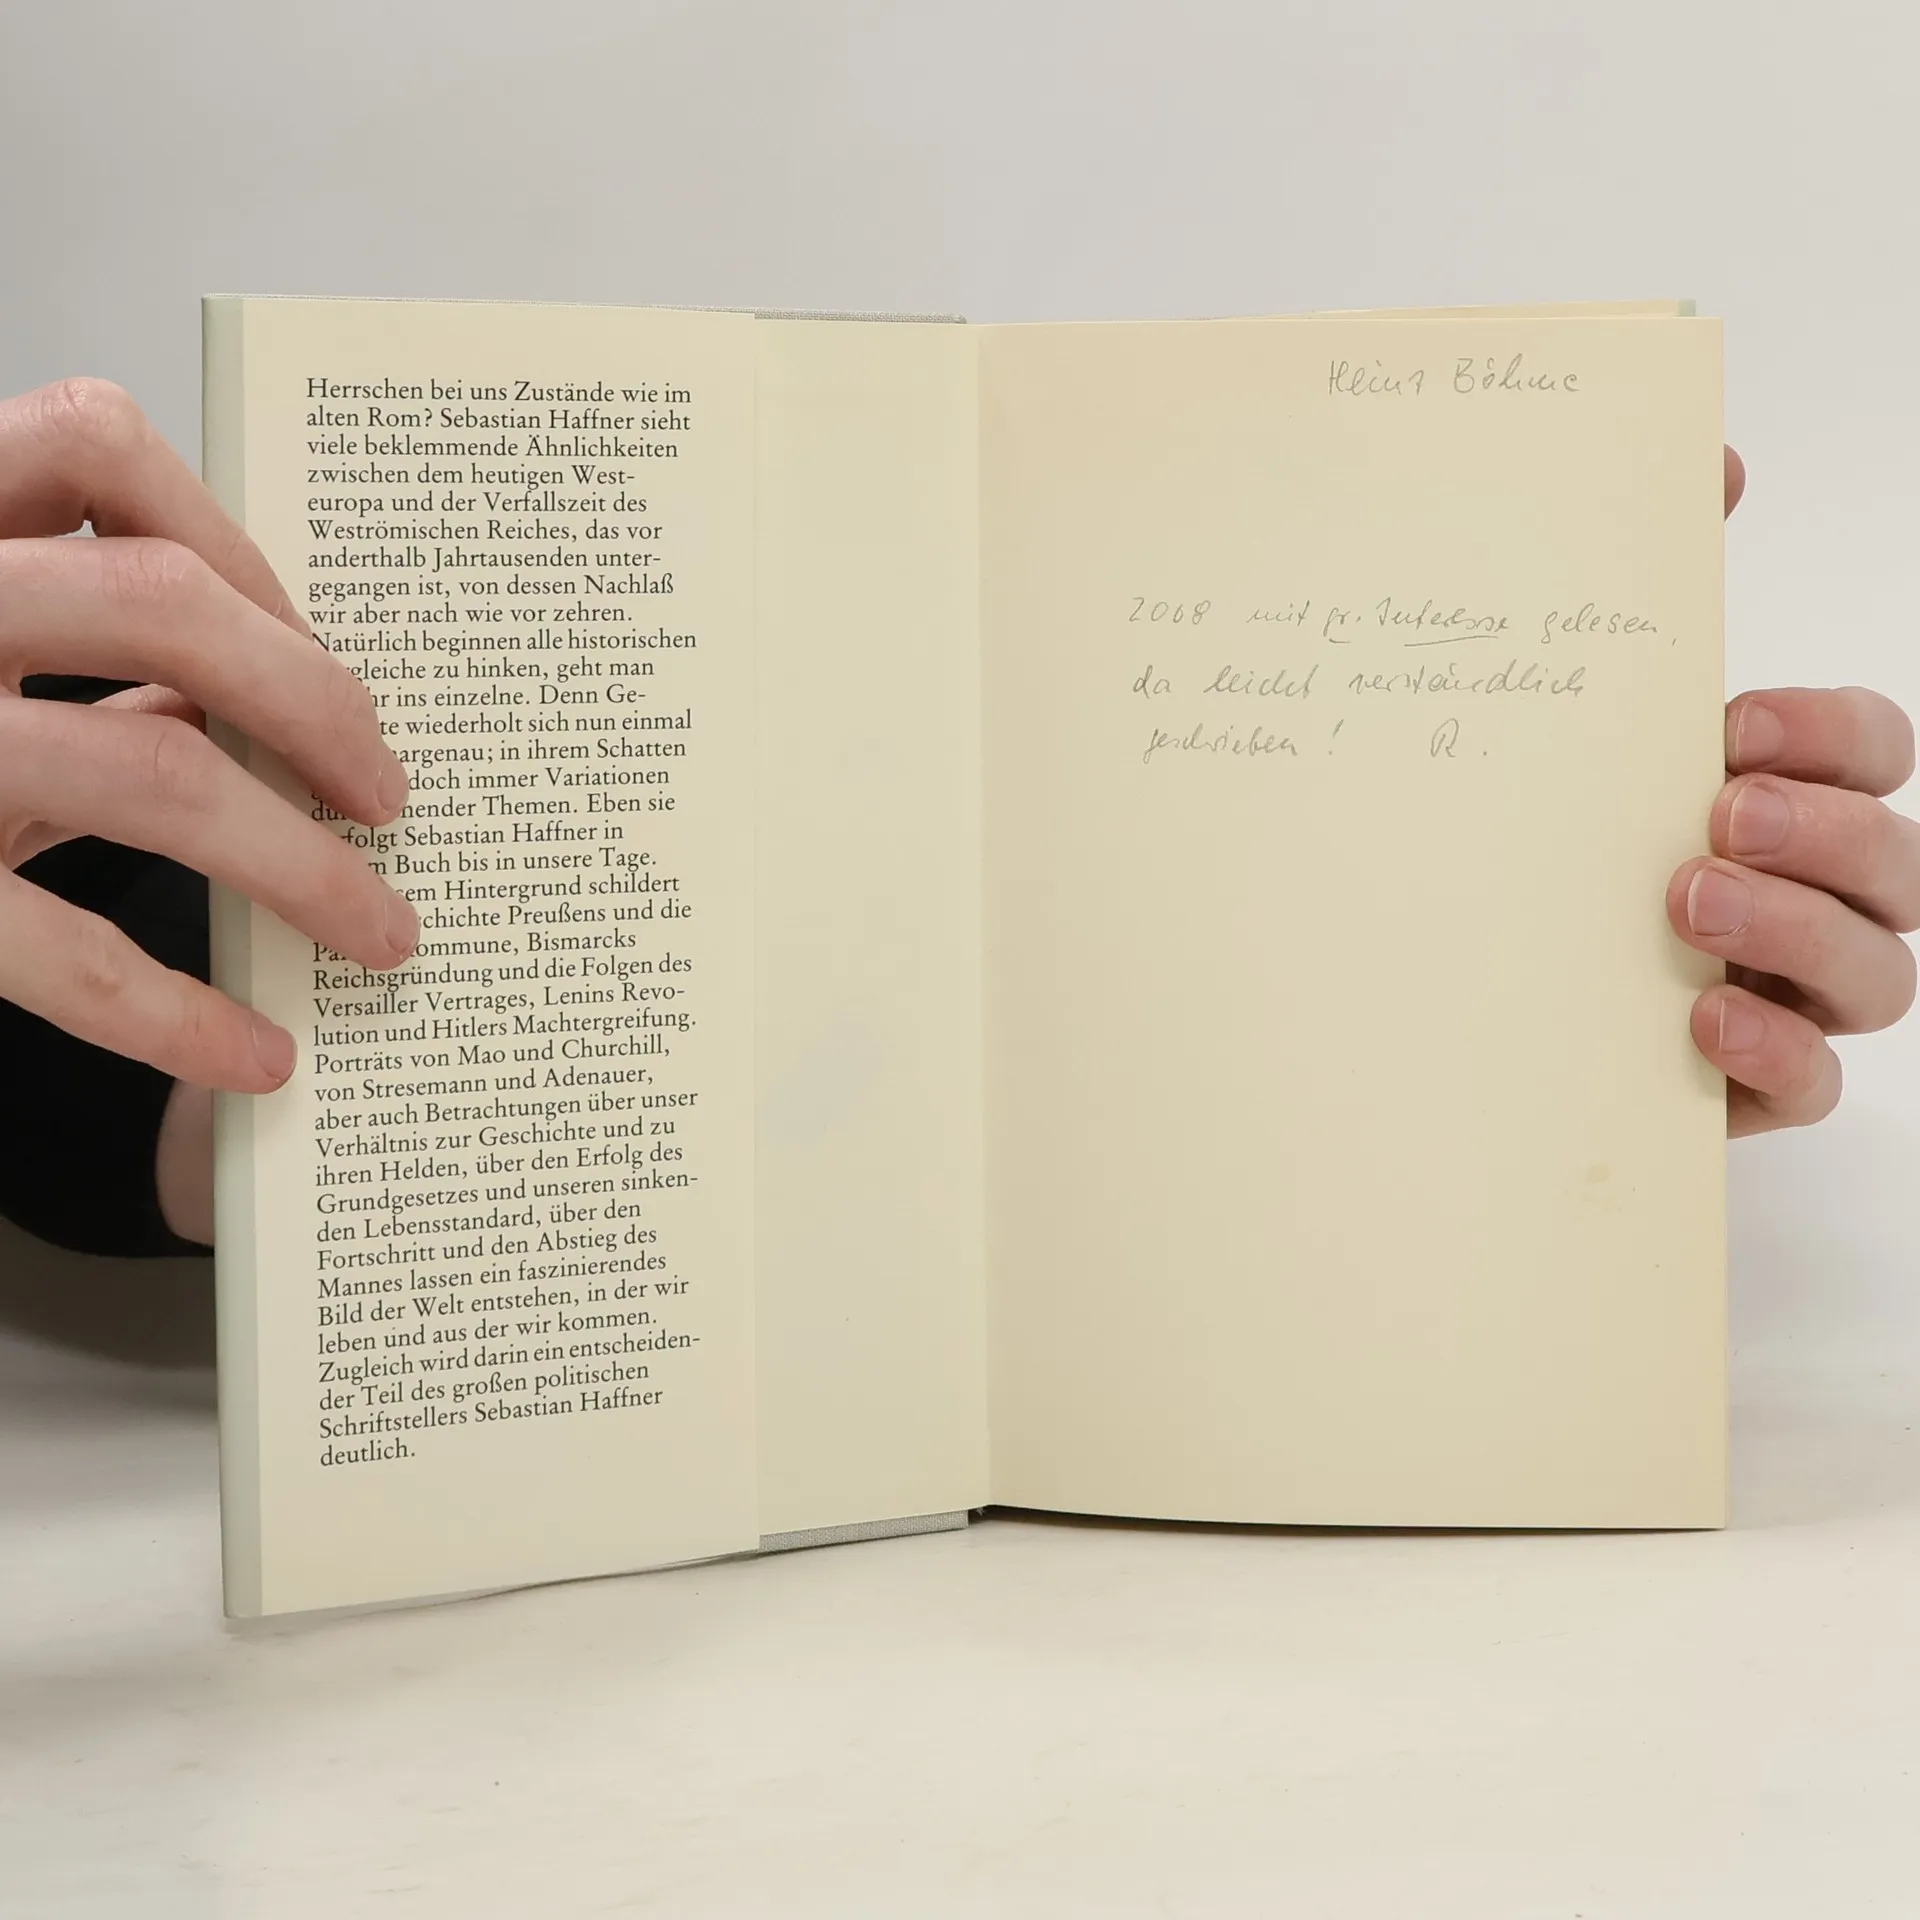 Herrschen bei uns Zustände wie im
alten Rom? Sebastian Haffner sieht
viele beklemmende Ähnlichkeiten
zwischen dem heutigen West-
europa und der Verfallszeit des
Weströmischen Reiches, das vor
anderthalb Jahrtausenden unter-
gegangen ist, von dessen Nachlaß
wir aber nach wie vor zehren.
Natürlich beginnen alle historischen
gleiche zu hinken, geht man
hr ins einzelne. Denn Ge-
te wiederholt sich nun einmal
argenau; in ihrem Schatten
doch immer Variationen
du nender Themen. Eben sie
folgt Sebastian Haffner in
m Buch bis in unsere Tage.
sem Hintergrund schildert
schichte Preußens und die
Pa ommune, Bismarcks
Reichsgründung und die Folgen des
Versailler Vertrages, Lenins Revo-
lution und Hitlers Machtergreifung.
Porträts von Mao und Churchill,
von Stresemann und Adenauer,
aber auch Betrachtungen über unser
Verhältnis zur Geschichte und zu
ihren Helden, über den Erfolg des
Grundgesetzes und unseren sinken-
den Lebensstandard, über den
Fortschritt und den Abstieg des
Mannes lassen ein faszinierendes
Bild der Welt entstehen, in der wir
leben und aus der wir kommen.
Zugleich wird darin ein entscheiden-
der Teil des großen politischen
Schriftstellers Sebastian Haffner
deutlich.
Heinz Böhme
2008 mit gr. Interesse gelesen,
da leicht verständlich
geschrieben! R.